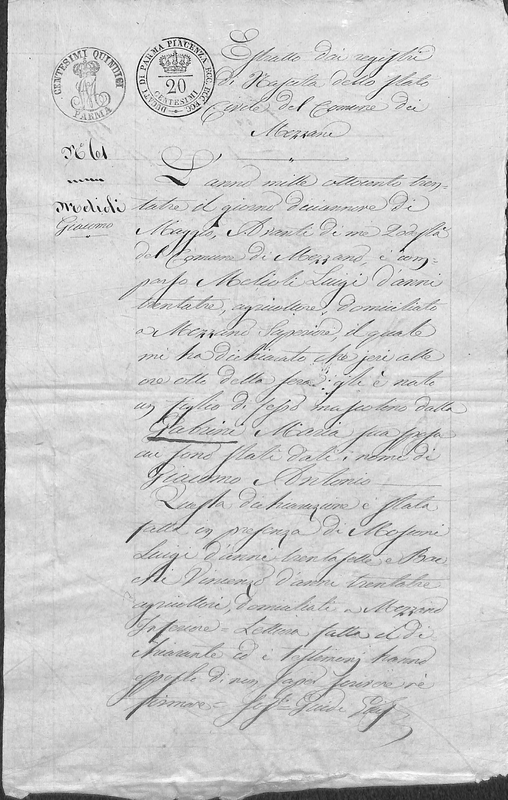 CENTESIMI QUINDICI
PARMA
DUCATI DI PARMA PIACENZA ECC. ECC. ECC.
20
CENTESIMI
Estratto dei registri
di Nascita dello stato
Civile del Comune dei
Mezzani
N° 61
Melioli
Giacomo
L'anno mille ottocento tren-
tatre il giorno diciannove di
Maggio, Avanti di me Podestà
del Comune di Mezzano, è com-
parso Melioli Luigi d'anni
trentatre, agricoltore, domiciliato
a Mezzano Superiore, il quale
mi ha dichiarato che jeri alle
ore otto della sera gli è nato
un figlio di sesso mascolino dalla
Maria sua sposa
cui sono stati dati i nomi di
Giacomo Antonio
Questa dichiarazione è stata
fatta in presenza di
Luigi d'anni trentasette e
Vincenzo d'anni trentatre
agricoltori, domiciliati a Mezzano
Inferiore = Lettura fatta il di-
chiarante ed i testimonj hanno
di non saper scrivere nè
firmare =